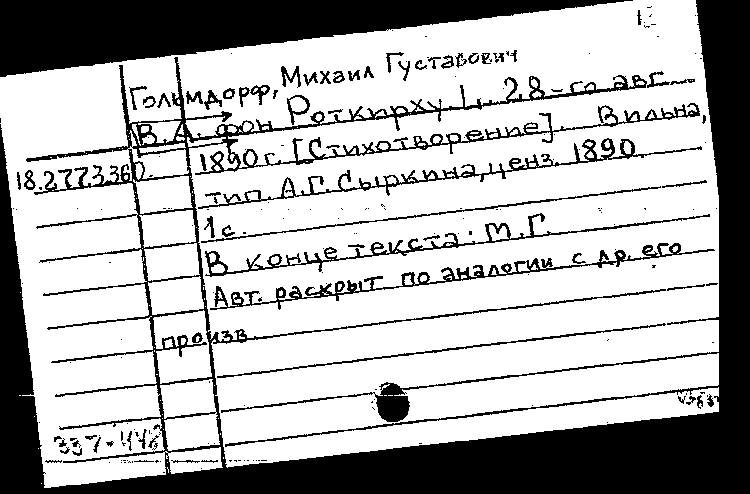 Гольмдорф, Михаил Густавович
В. А. фон Роткирху I, 28-го авг.
18.277.3.360. 1890 г. [Стихотворение]. Вильна,
тип. А. Г. Сыркина, ценз. 1890.
1 с.
В конце текста: М. Г.
Авт. раскрыт по аналогии с др. его
произв.
337-448